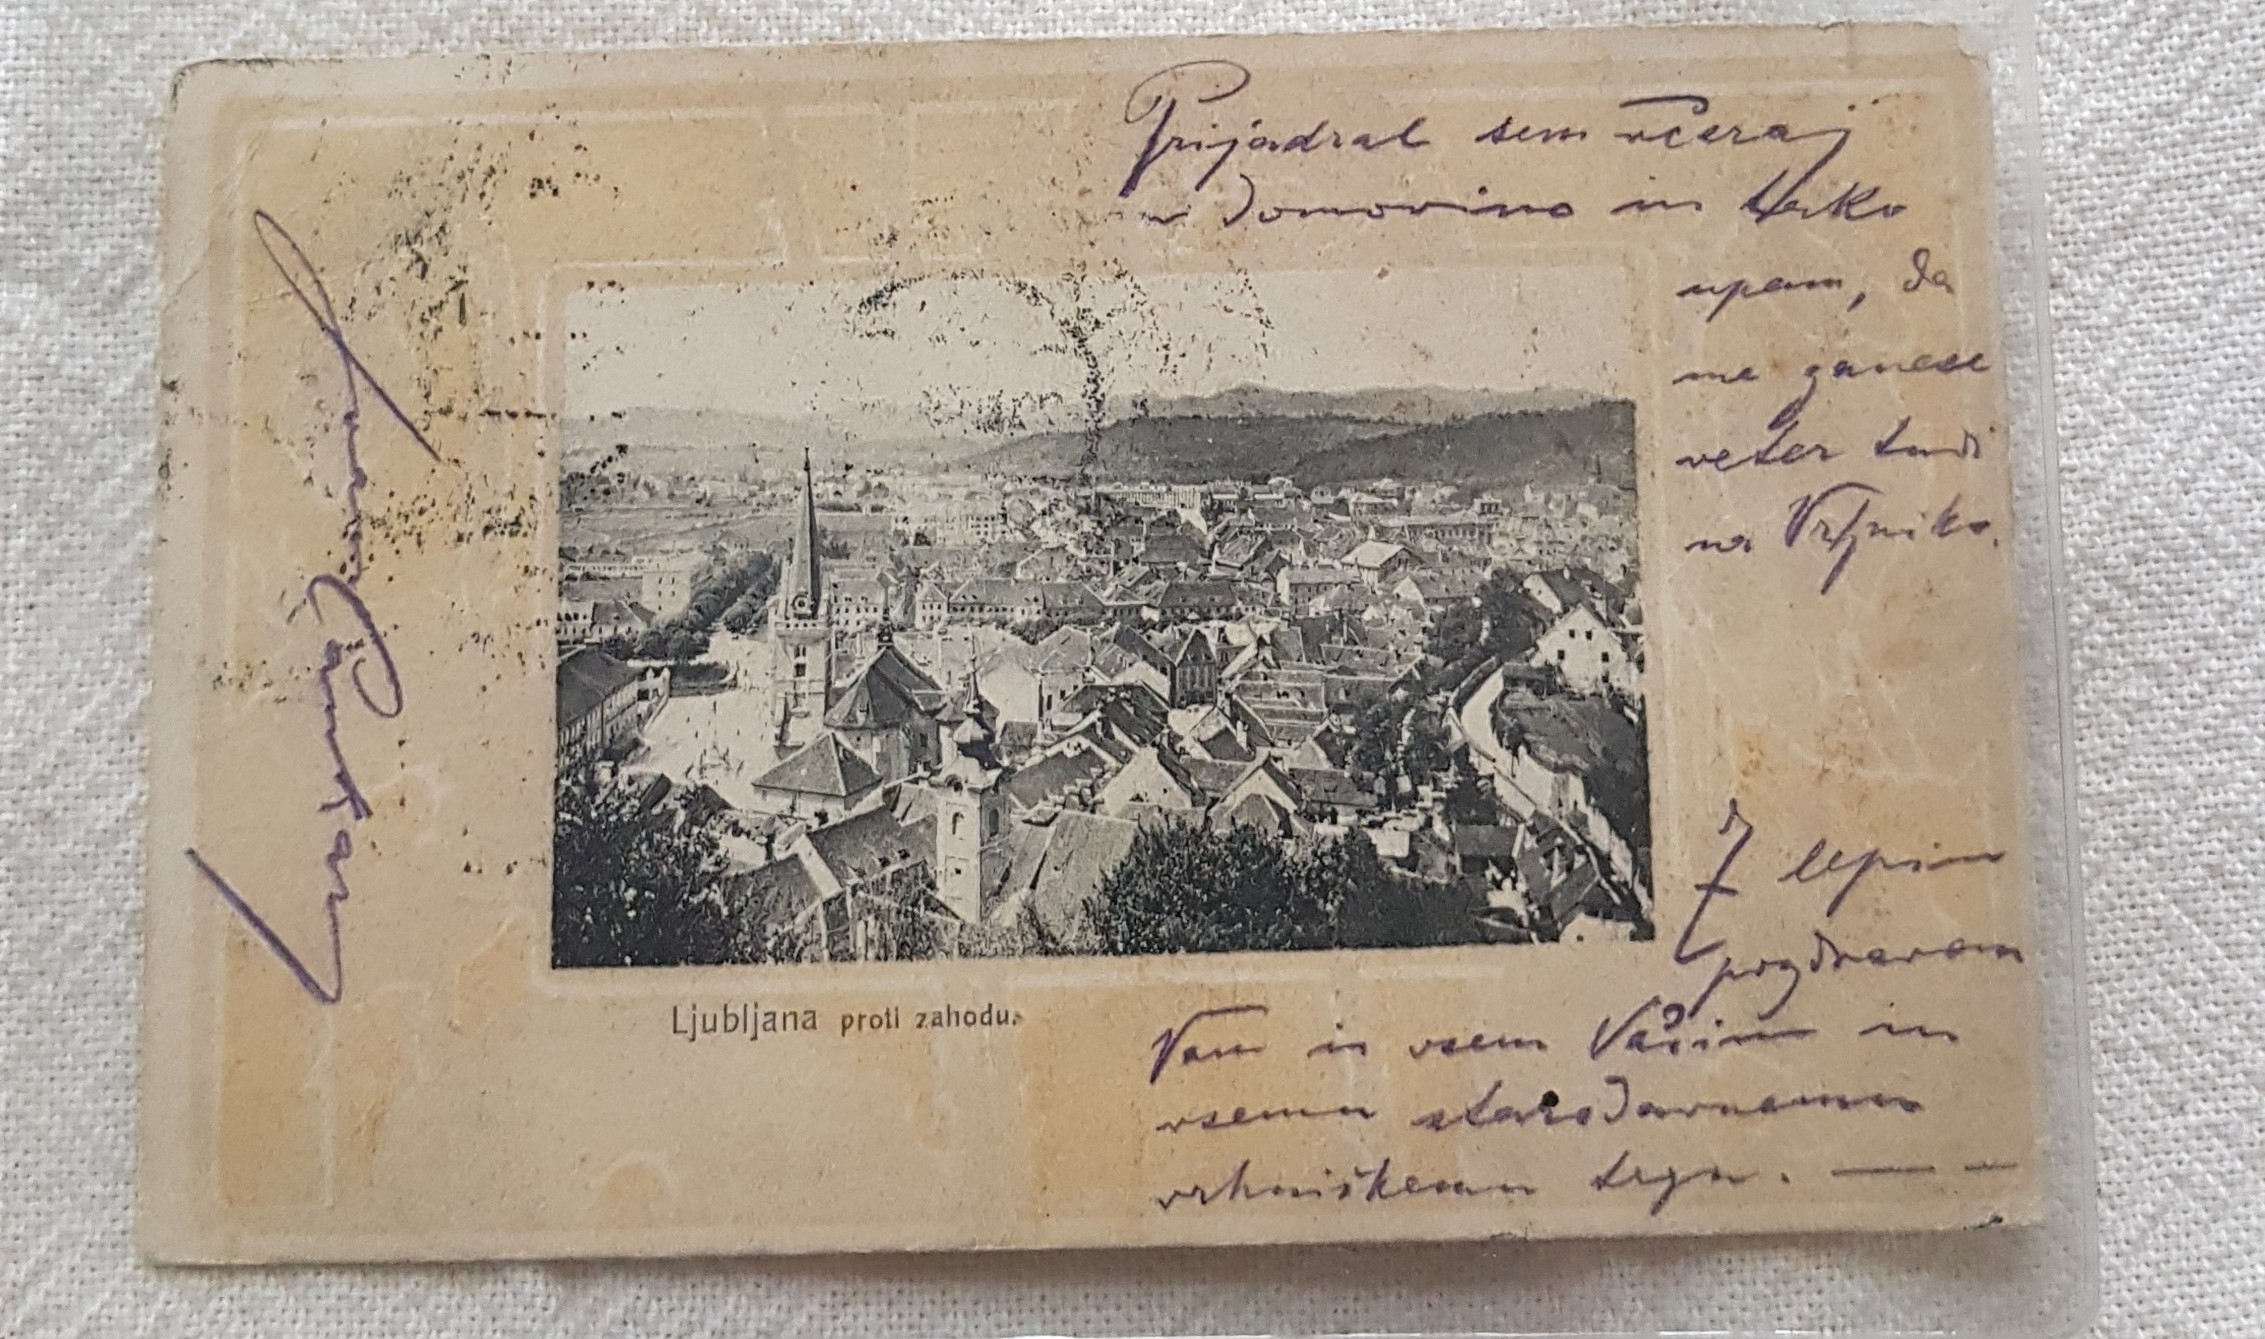 Prijadral sem včeraj
v domovino in trko
upam, da
me zanese
veter tudi
na Vrhniko.
Z lepim
pozdravom
Vam in vsem Vašim in
vsemu starodavnemu
vrhniškemu trgu. — —
Ivan Cankar
Ljubljana proti zahodu.